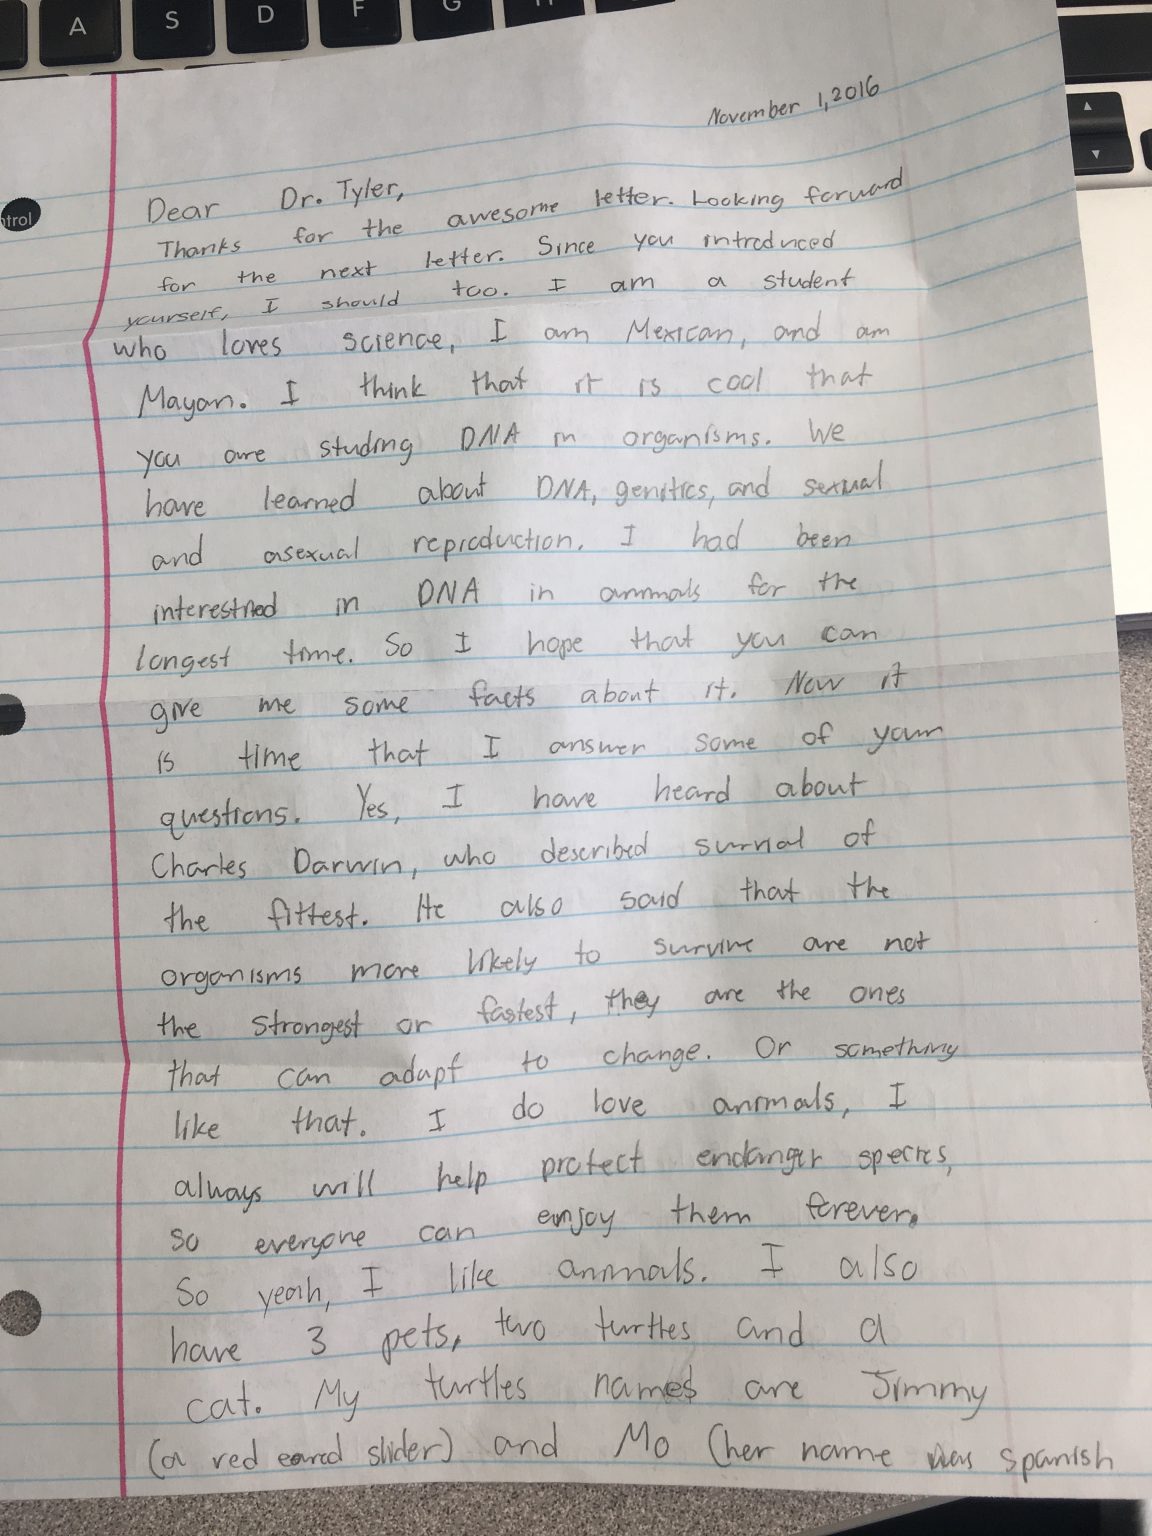 A S D F G
ntrol
November 1, 2016
Dear Dr. Tyler,
Thanks for the awesome letter. Looking forward
for the next letter. Since you introduced
yourself, I should too. I am a student
who loves science, I am Mexican, and am
Mayan. I think that it is cool that
you are studing DNA in organisms. We
have learned about DNA, genitics, and sexual
and asexual reproduction. I had been
in DNA in animals for the
longest time. So I hope that you can
give me some facts about it. Now it
is time that I answer some of your
questions. Yes, I have heard about
Charles Darwin, who described survial of
the fittest. He also said that the
organisms more likely to survive are not
the strongest or fastest, they are the ones
that can adapt to change. Or something
like that. I do love animals, I
always will help protect endanger species,
so everyone can enjoy them forever.
So yeah, I like animals. I also
have 3 pets, two turtles and a
cat. My turtles names are Jimmy
(a red eared slider) and Mo (her name was spanish